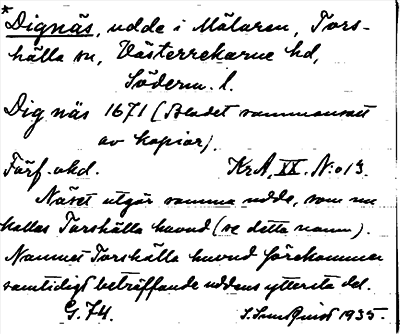 *Dignäs, udde i Mälaren, Tors-
hälla sn, Västerrekarne hd,
Söderm. l.
Dignäs 1671 (Bladet sammansatt
av kopior).
Förf. okd. KrA, XX. N:o 13.
Näset utgör samma udde, som nu
kallas Torshälla huvud (se detta namn).
Namnet Torshälla huvud förekommer
samtidigt beträffande uddens yttersta del.
G. 74. 1935.